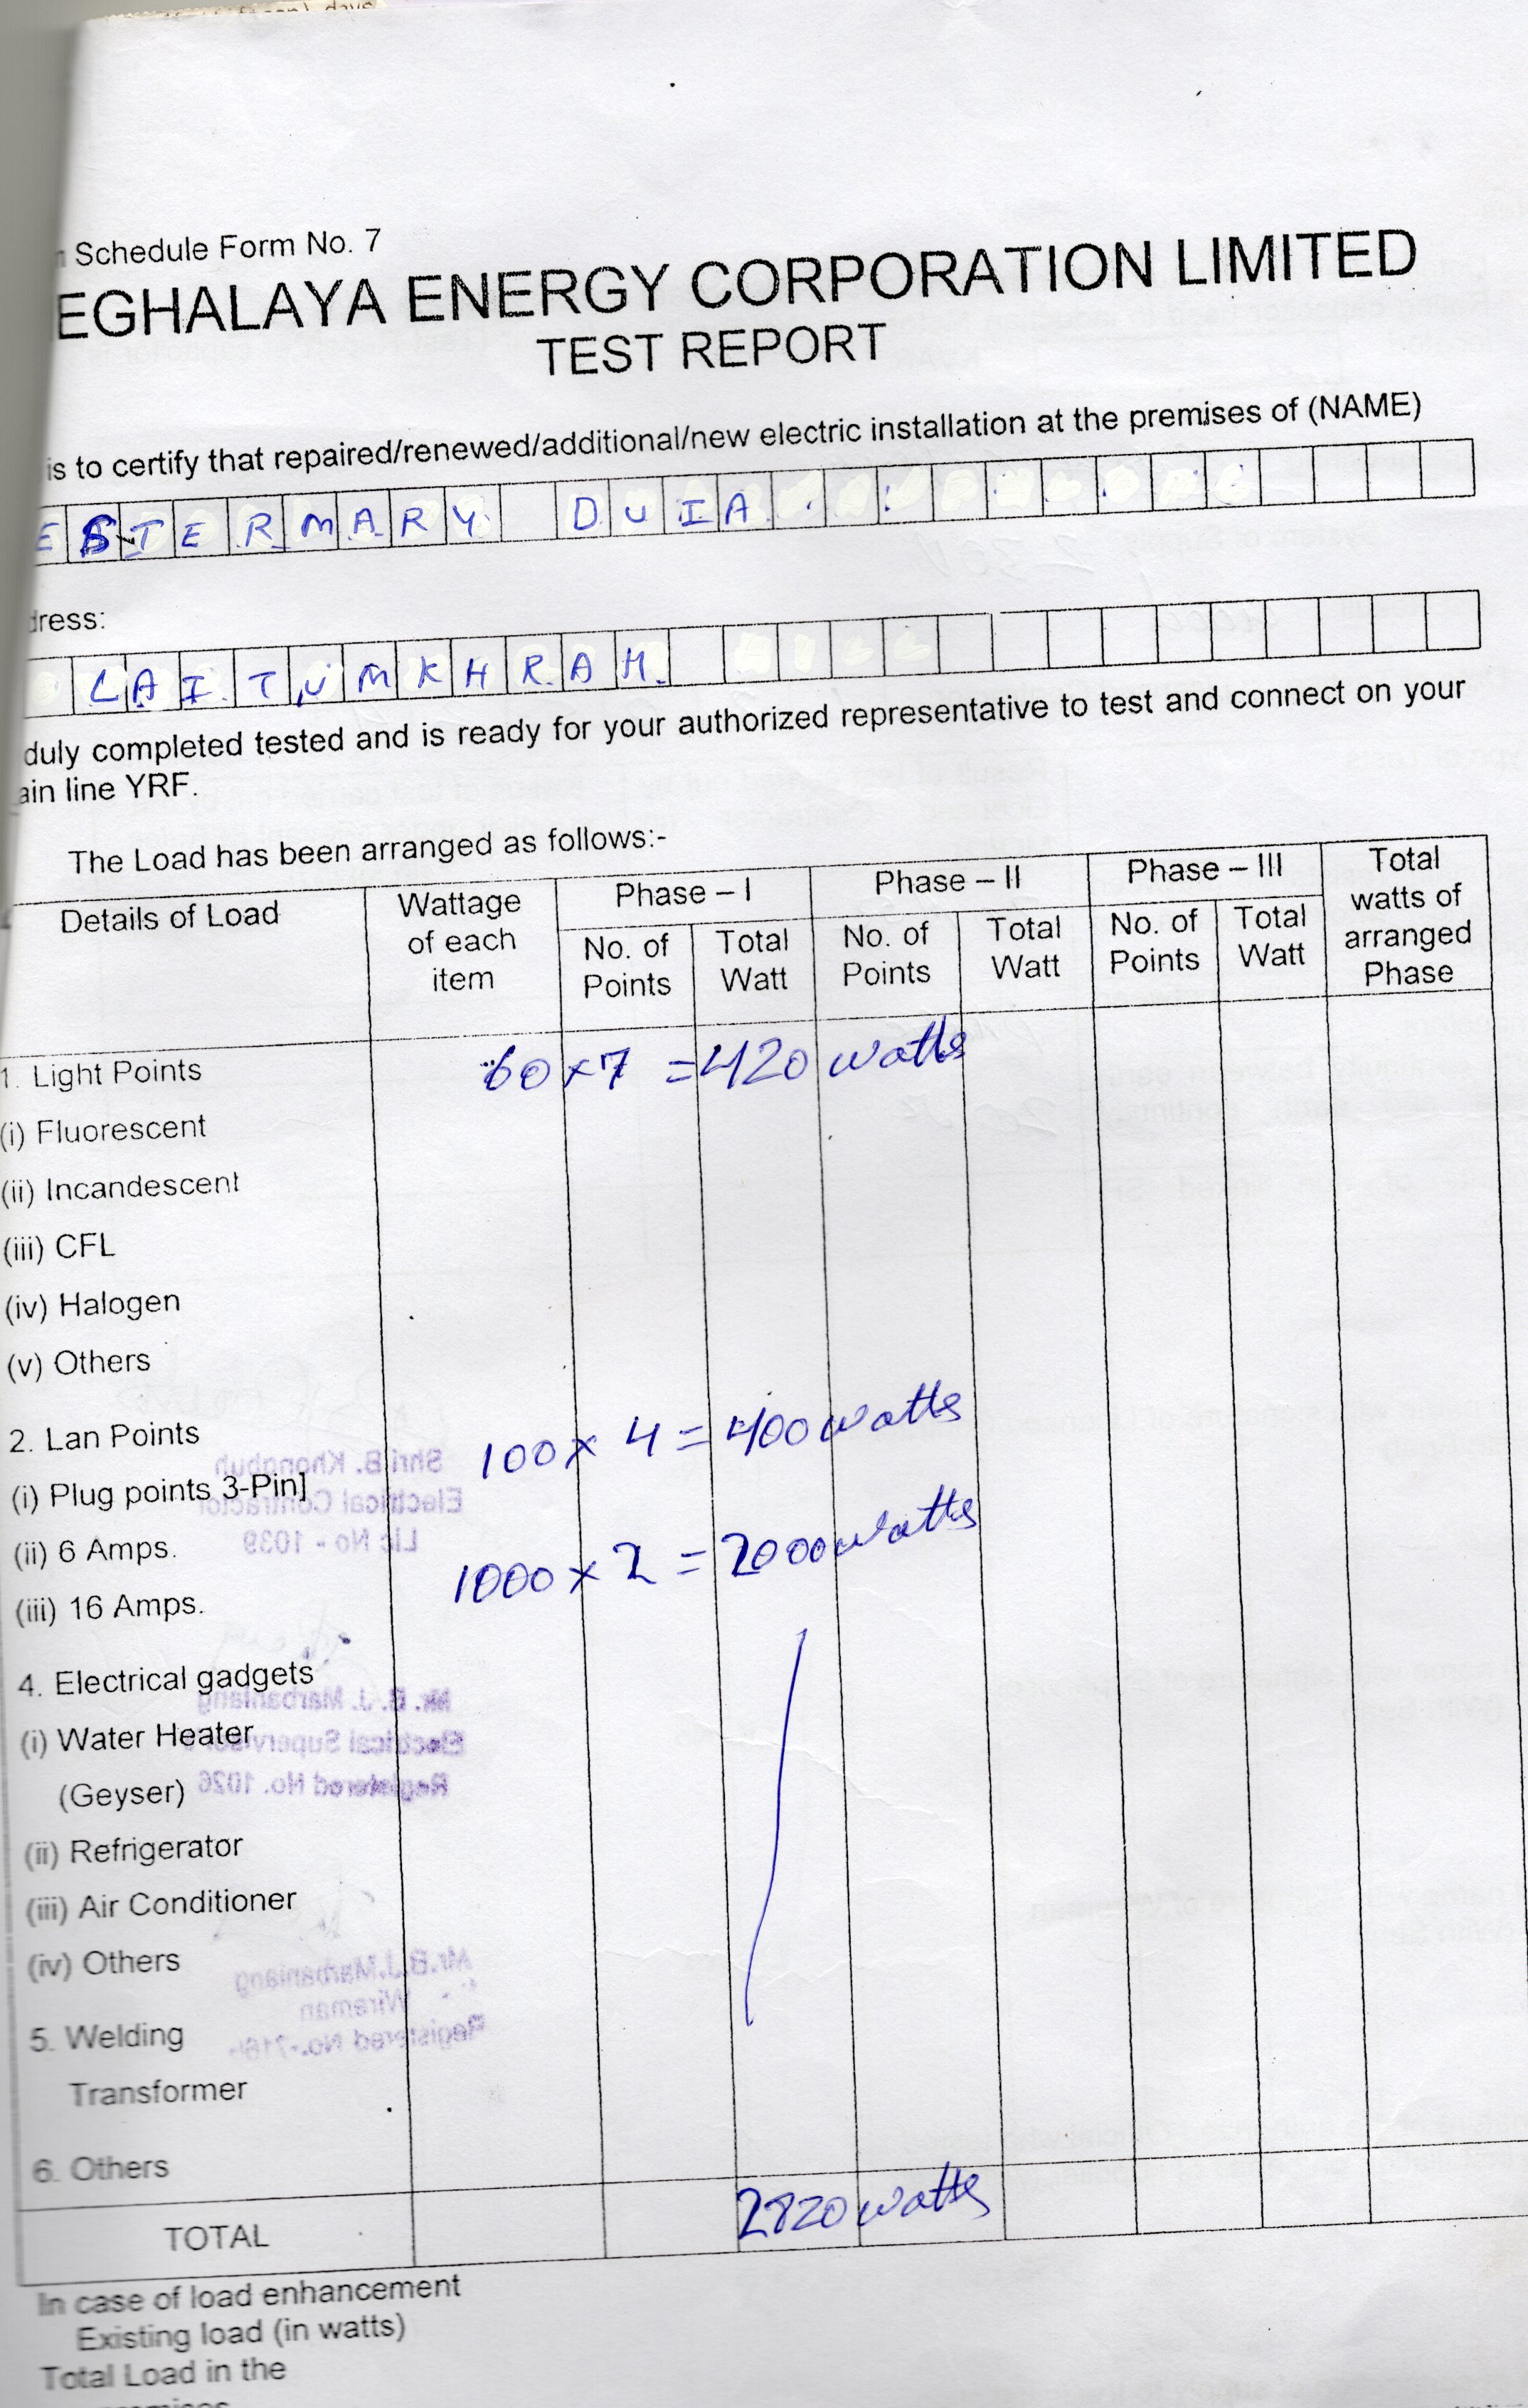 Schedule Form No. 7
EGHALAYA ENERGY CORPORATION LIMITED
TEST REPORT
is to certify that repaired/renewed/additional/new electric installation at the premises of (NAME)
ESTERMARY DUIA
dress:
LAITUMKHRAH
duly completed tested and is ready for your authorized representative to test and connect on your
ain line YRF.
The Load has been arranged as follows:-
Details of Load Wattage of each item Phase – I Phase – II Phase – III Total watts of arranged Phase
No. of Points Total Watt No. of Points Total Watt No. of Points Total Watt
1. Light Points 60 x 7 = 420 watts
(i) Fluorescent
(ii) Incandescent
(iii) CFL
(iv) Halogen
(v) Others
2. Lan Points 100 x 4 = 400 watts
(i) Plug points 3-Pin]
(ii) 6 Amps. 1000 x 2 = 2000 watts
(iii) 16 Amps.
4. Electrical gadgets
(i) Water Heater
(Geyser)
(ii) Refrigerator
(iii) Air Conditioner
(iv) Others
5. Welding
Transformer
6. Others
TOTAL 2820 watts
In case of load enhancement
Existing load (in watts)
Total Load in the